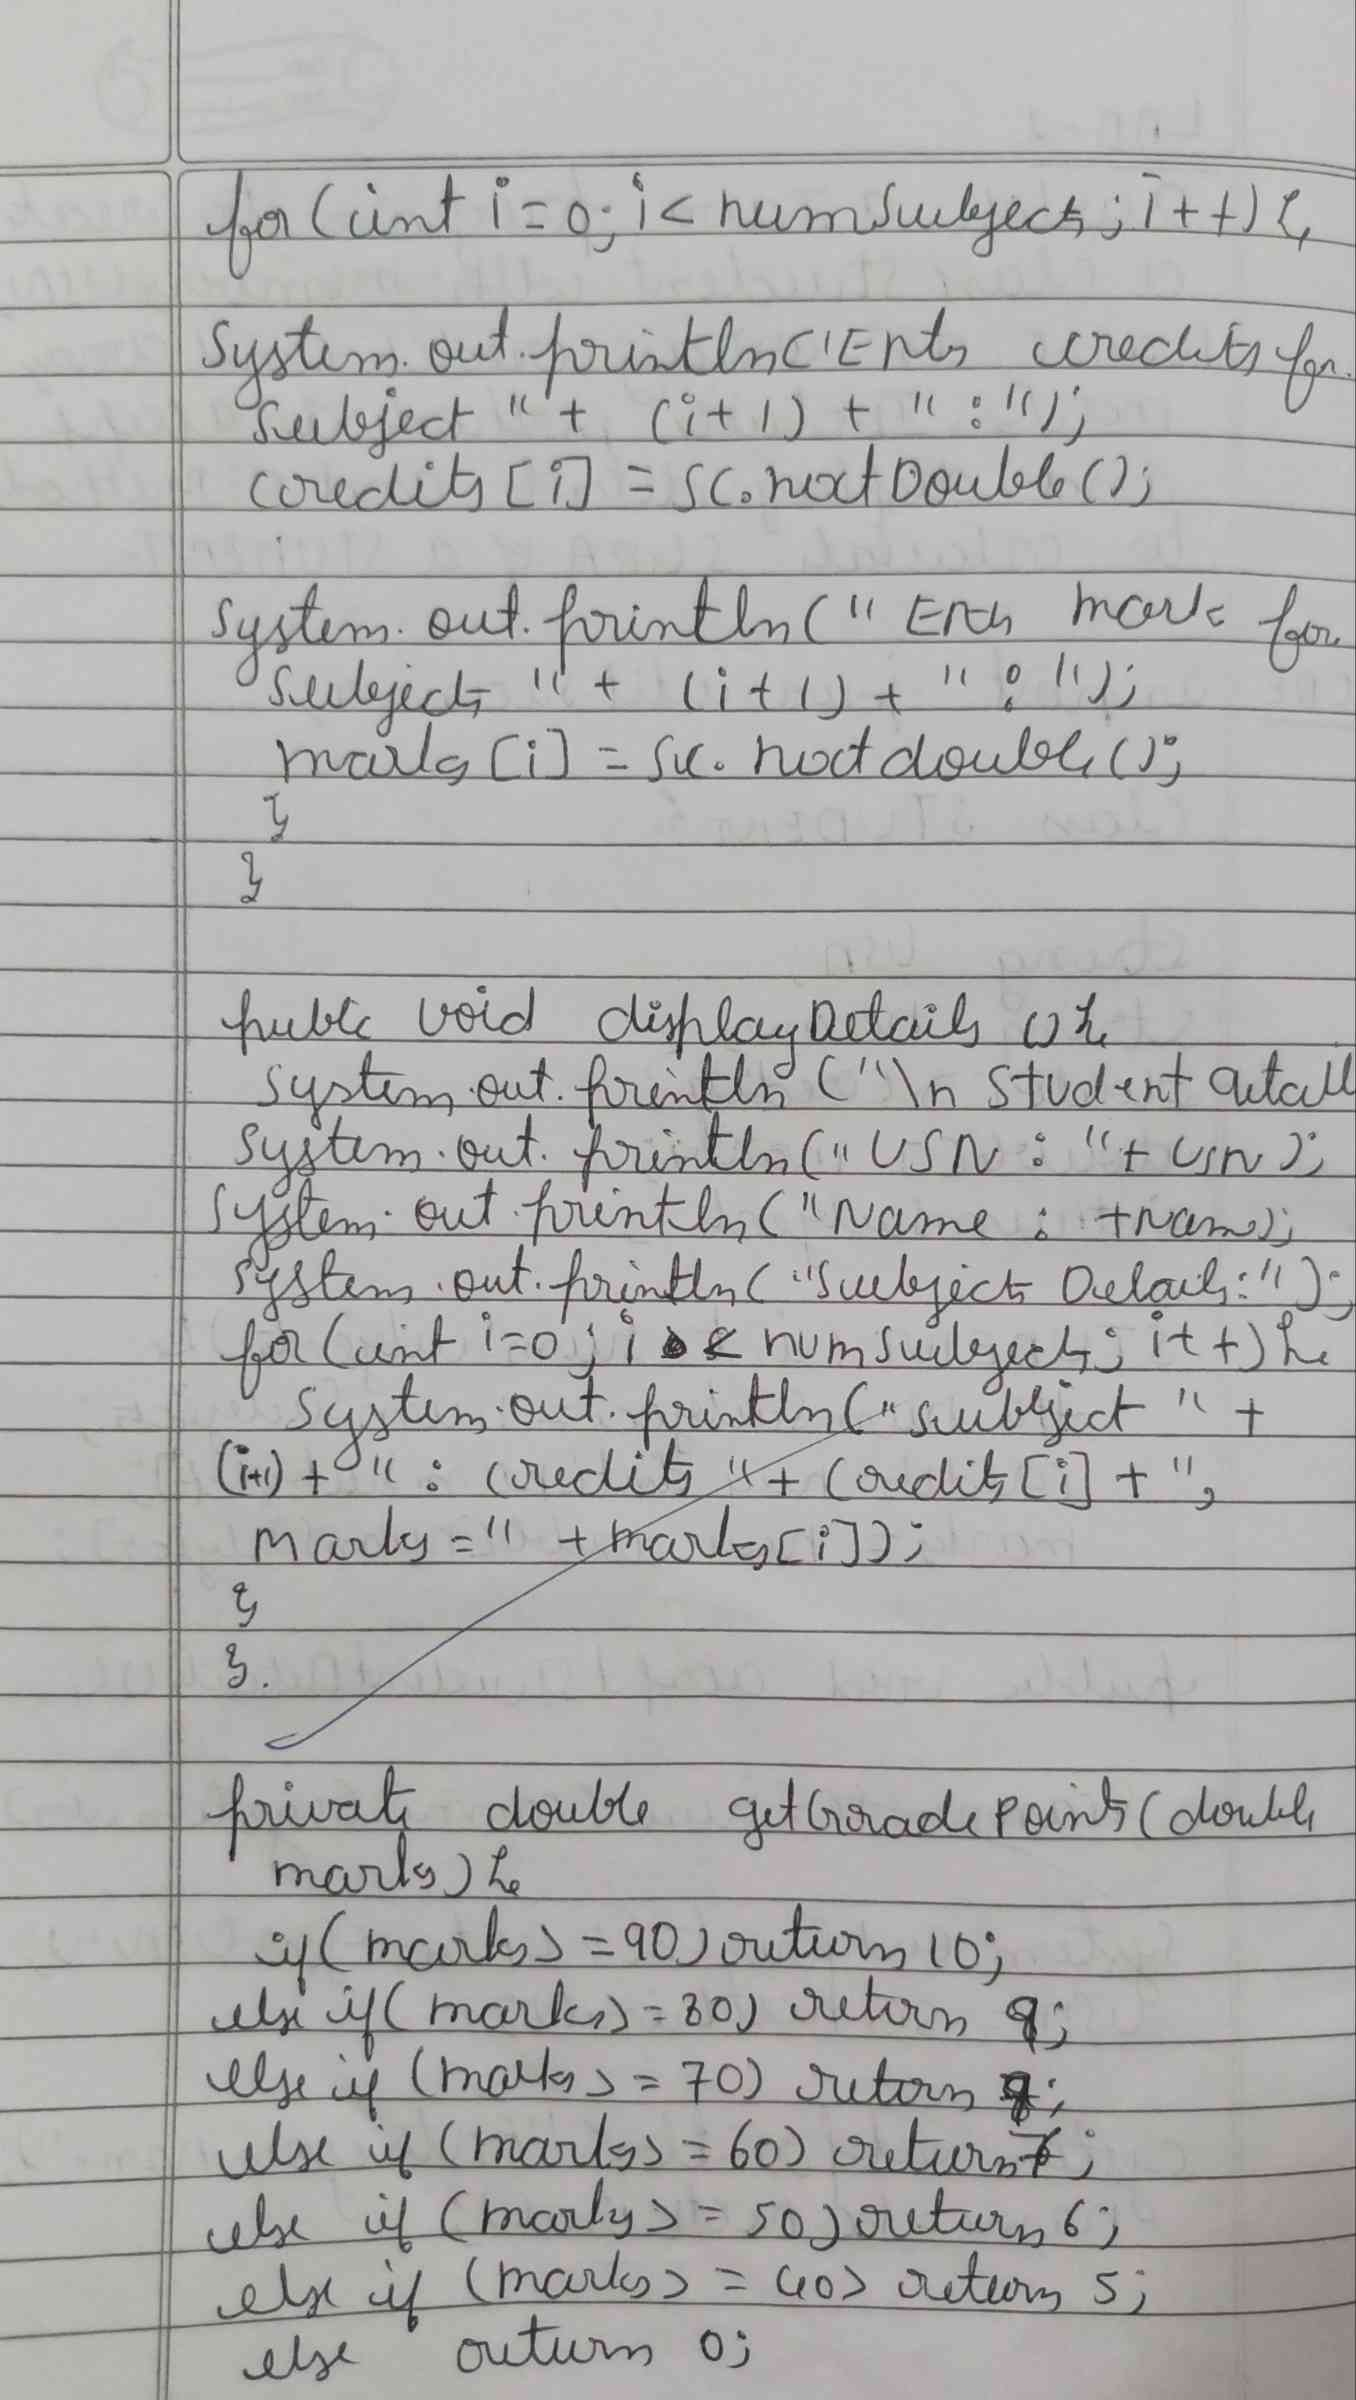 for (int i=0; i< numSubjects; i++) {
System.out.println("Enter credits for
Subject " + (i+1) + " : ");
credits [i] = sc.nextDouble ();
System.out.println (" Enter mark for
Subjects " + (i+1) + " : ");
marks [i] = sc. nextdouble ();
}
}
public void displayDetails () {
System.out.println ("\n Student detail
System.out. println (" USN : "+ usn );
System.out.println (" Name : +Name);
System.out.println ( "Subjects Details:");
for (int i=0; i < numSubjects; i++) {
System.out.println (" Subject " +
(i+1) + " : credits "+ credits [i] + ",
Marks =" + marks [i]);
}
}.
private double getGradePoints (double
marks) {
if (marks >=90) return 10;
else if (marks >=80) return 9;
else if (marks >= 70) return ;
else if (marks >= 60) return 7;
else if (marks >= 50) return 6;
else if (marks >= 40) return 5;
else return 0;